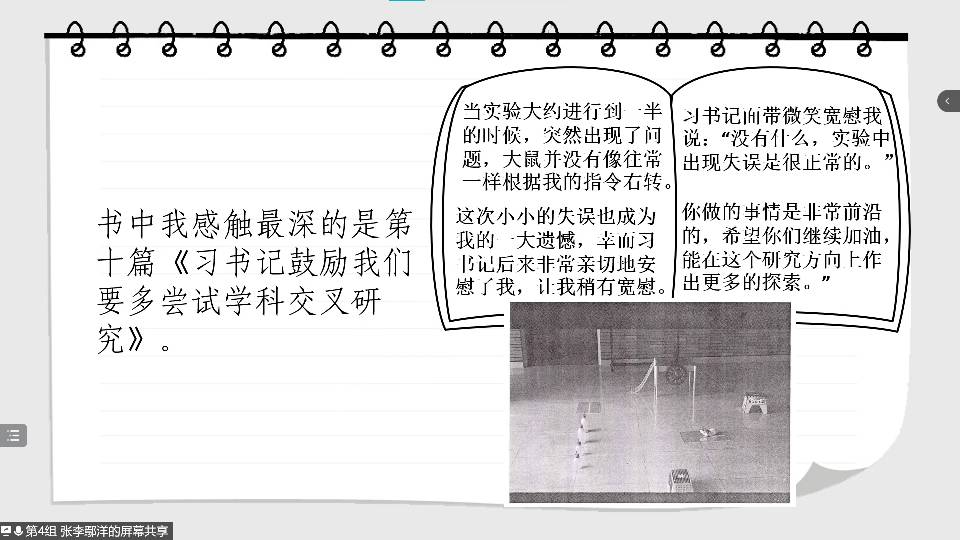 书中我感触最深的是第
十篇《习书记鼓励我们
要多尝试学科交叉研
究》。
当实验大约进行到一半
的时候，突然出现了问
题，大鼠并没有像往常
一样根据我的指令右转。
这次小小的失误也成为
我的一大遗憾，幸而习
书记后来非常亲切地安
慰了我，让我稍有宽慰。
习书记面带微笑宽慰我
说：“没有什么，实验中
出现失误是很正常的。”
你做的事情是非常前沿
的，希望你们继续加油，
能在这个研究方向上作
出更多的探索。”
第4组 张李鄢洋的屏幕共享